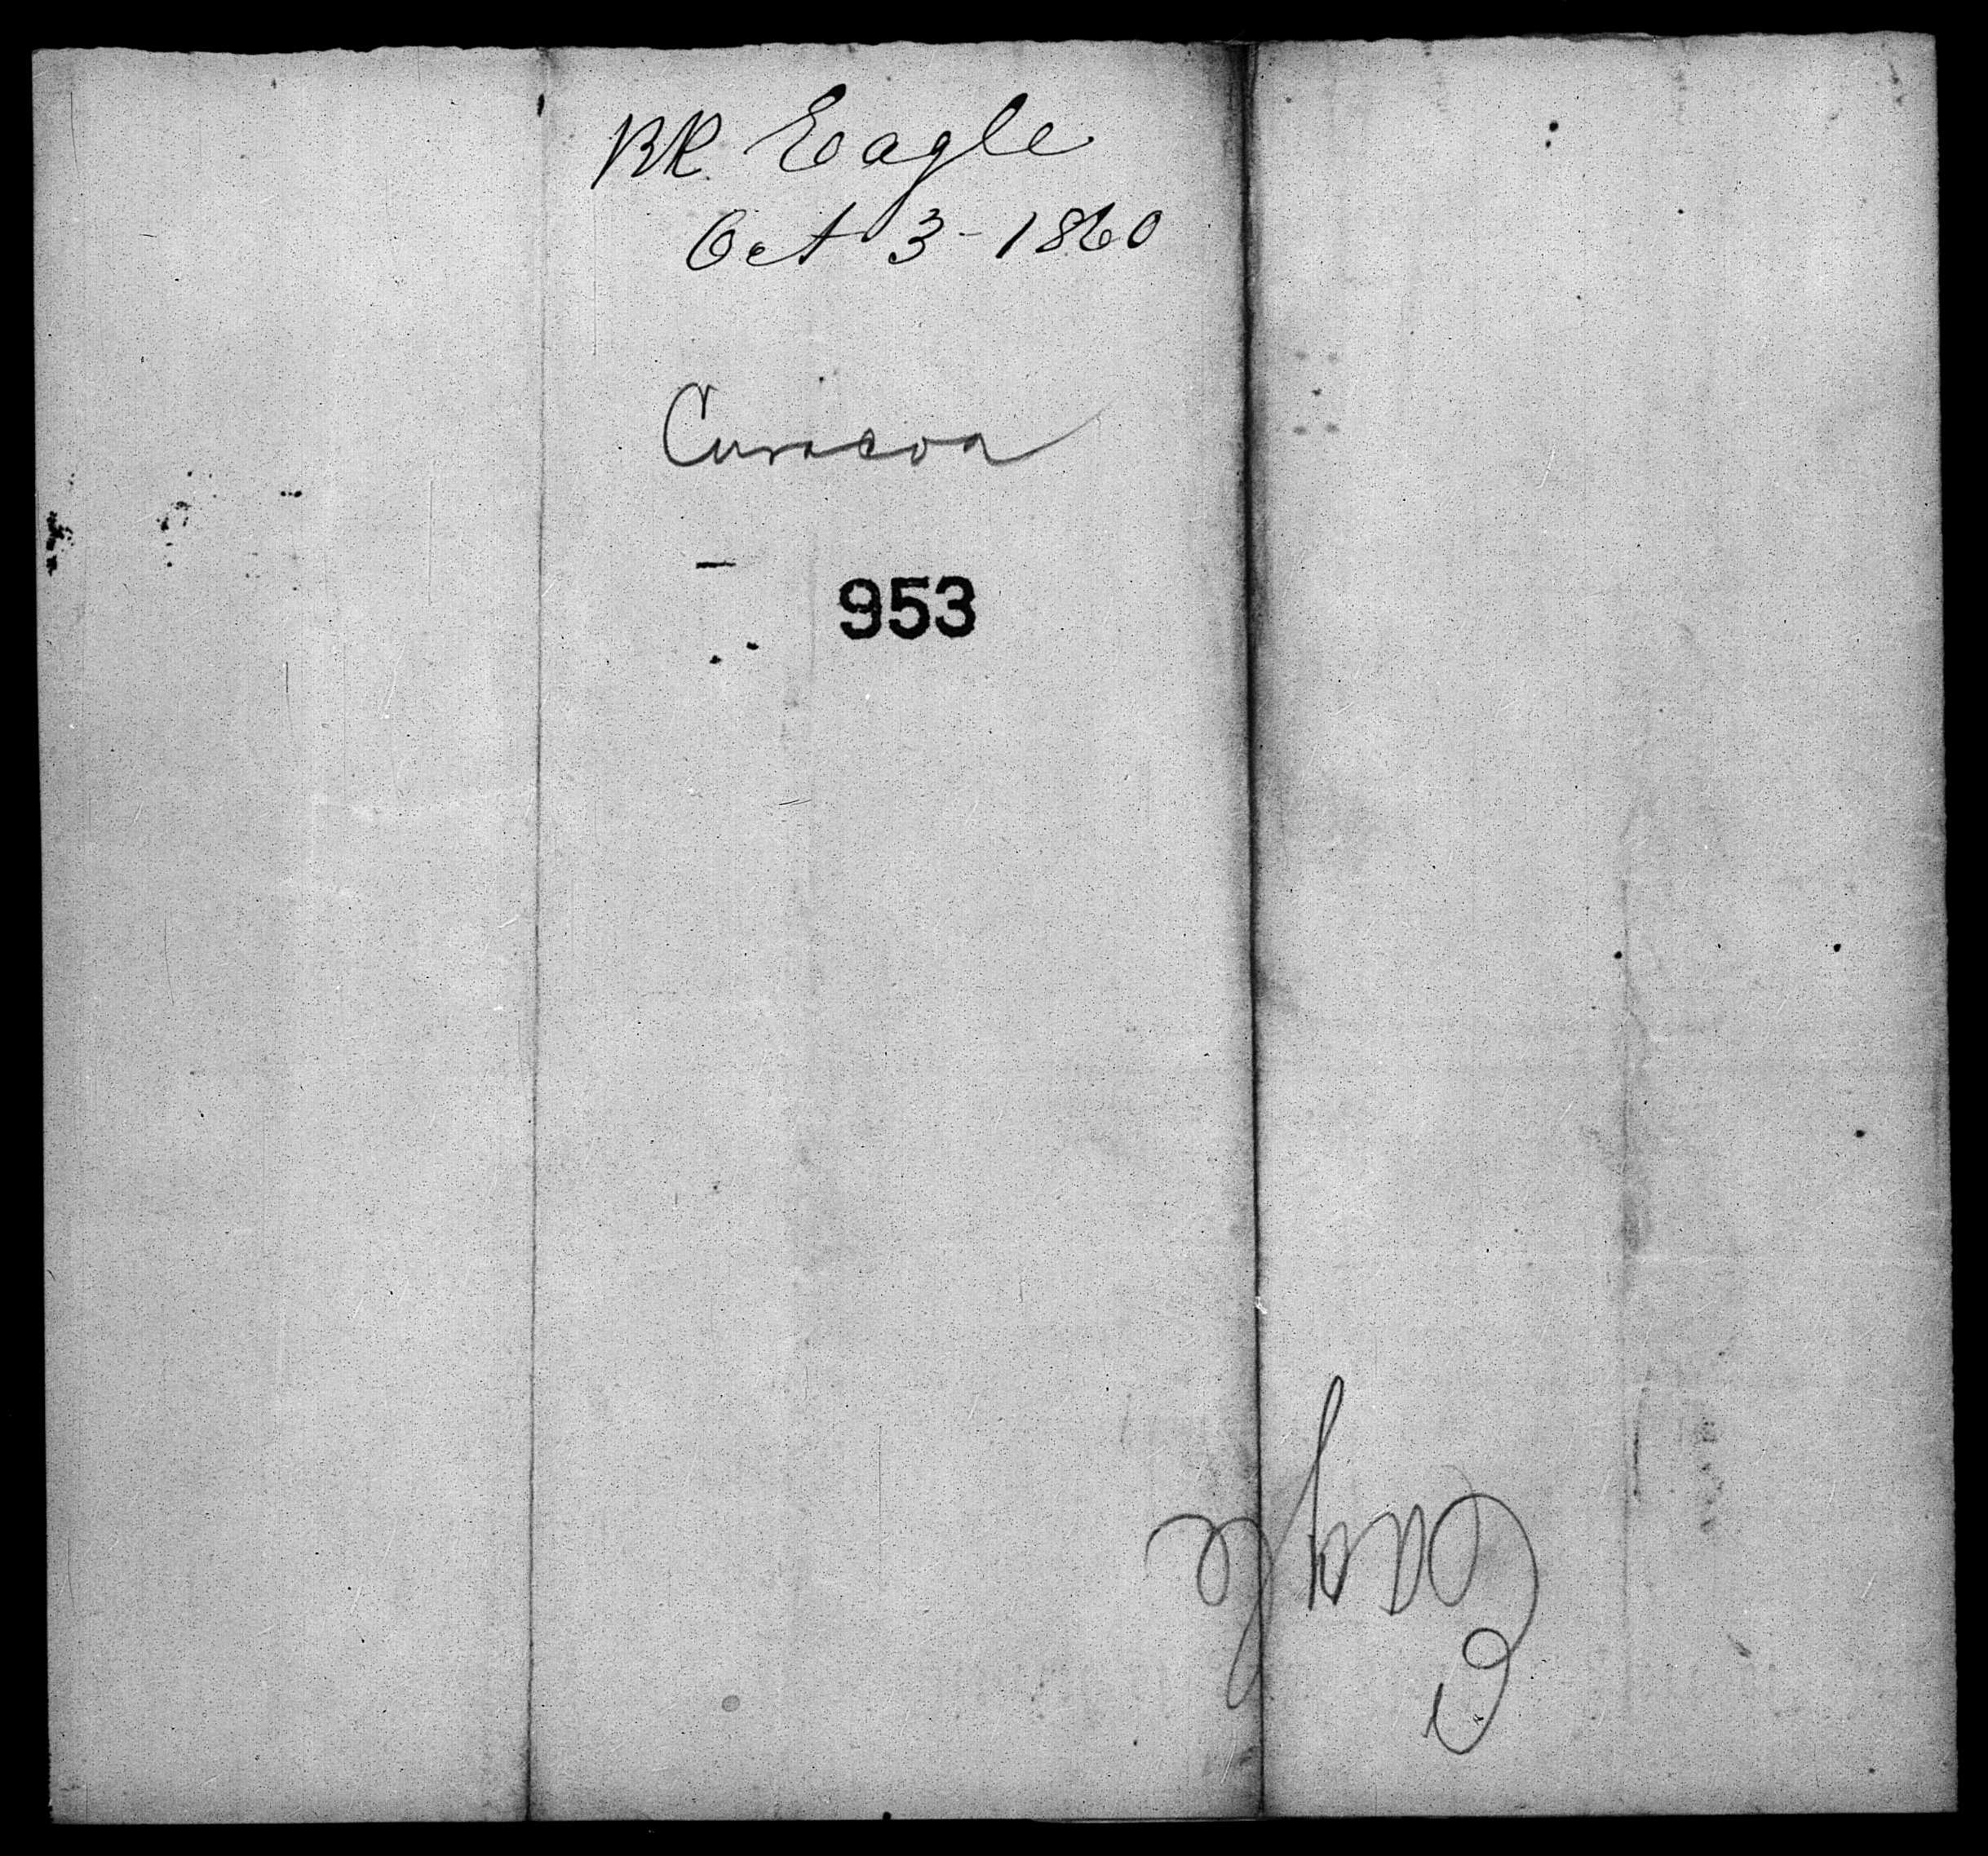 BK Eagle
Oct 3 - 1860
Curacoa
953
Eagle